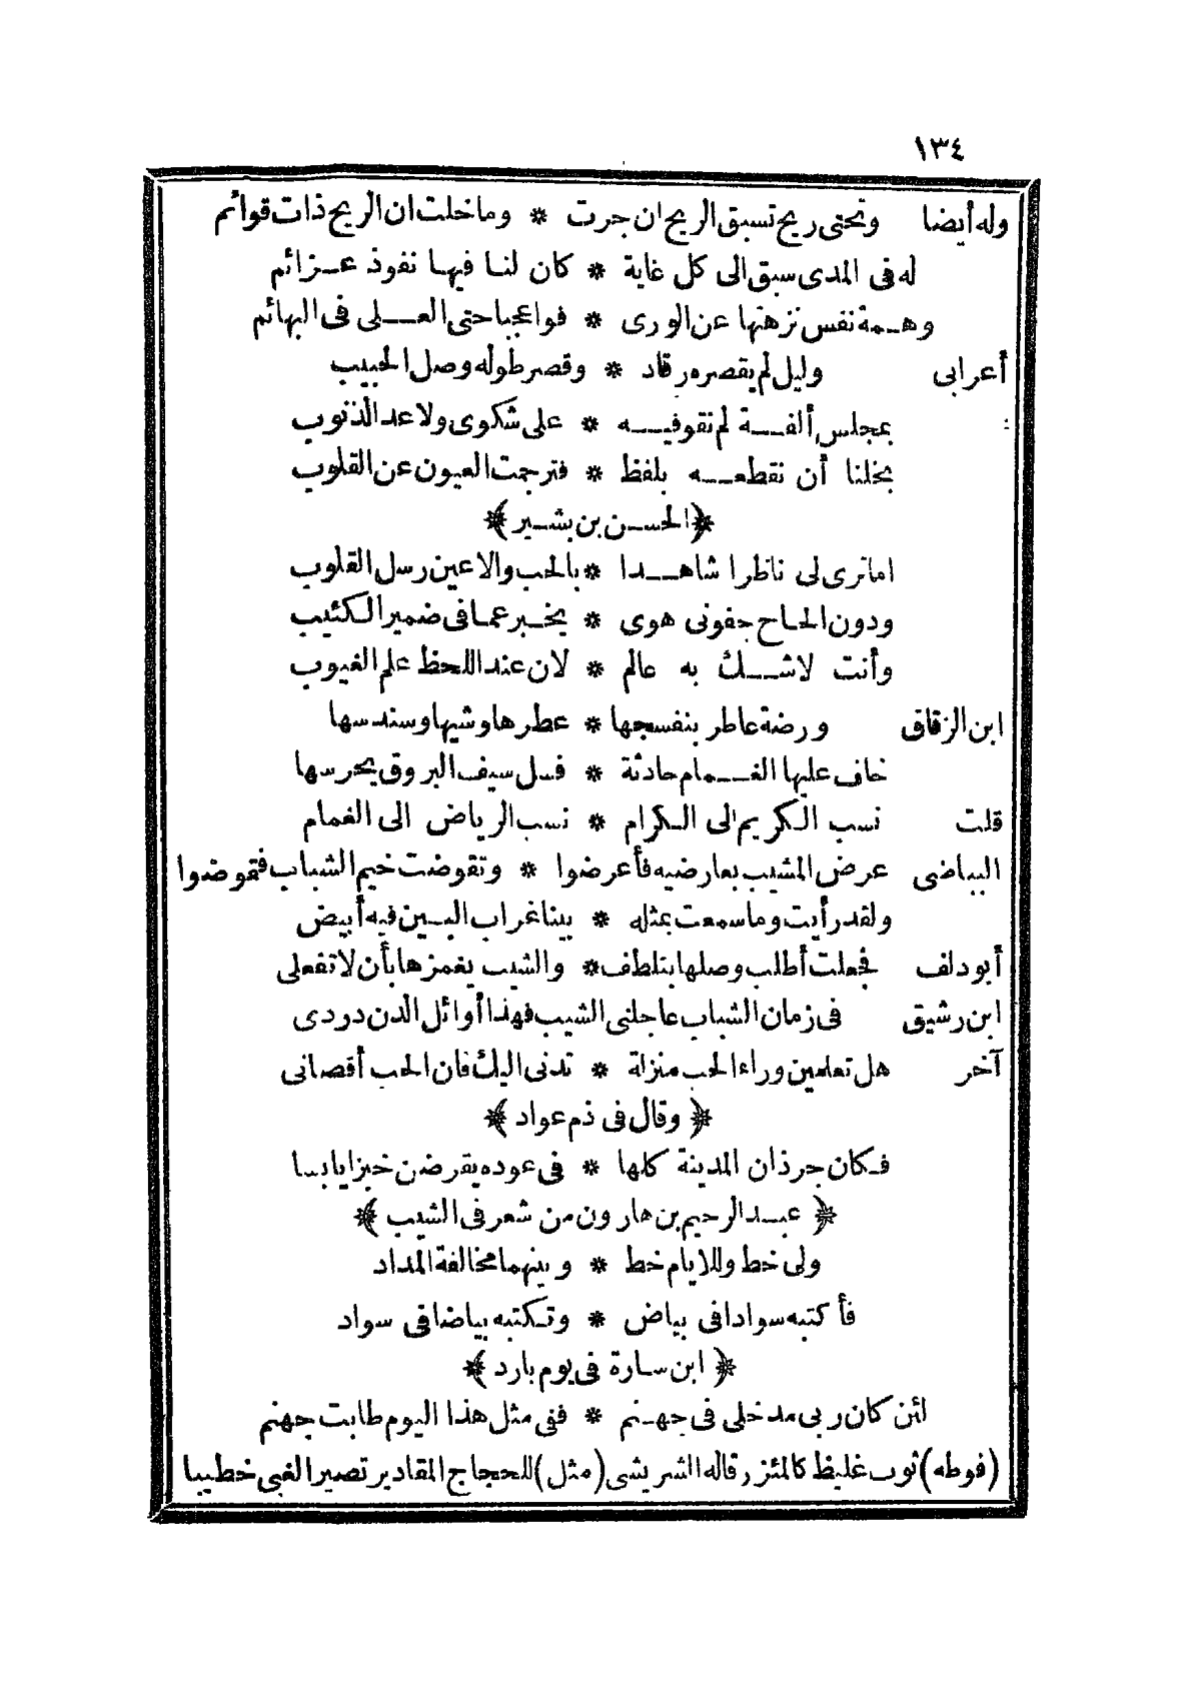 ١٣٤
وله أيضا وتحتى ريح تسبق الريح ان جرت * وما خلت ان الريح ذات قوائم
له فى المدى سبق الى كل غاية * كان لنا فيها نفوذ عزائم
وهمة نفس نزهتها عن الورى * فواعجبا حتى العلى فى البهائم
أعرابى وليل لم يقصره رقاد * وقصر طوله وصل الحبيب
بمجلس ألفة لم نقو فيه * على شكوى ولا عد الذنوب
بخلنا أن نقطعه بلفظ * فترجمت العيون عن القلوب
﴿الحسن بن بشير﴾
اما ترى لى ناظرا شاهدا * بالحب والاعين رسل القلوب
ودون الحاح جفونى هوى * يخبر عما فى ضمير الكئيب
وأنت لاشك به عالم * لان عند اللحظ علم الغيوب
ابن الزقاق ورضة عاطر بنفسجها * عطرها وشيها وسندسها
خاف عليها الغمام حادثة * فسل سيف البروق يحرسها
قلت نسب الكريم الى الكرام * نسب الرياض الى الغمام
البياضى عرض المشيب بعارضيه فأعرضوا * وتقوضت خيم الشباب فقوضوا
ولقد رأيت وما سمعت بمثله * بينا غراب البين فيه أبيض
أبو دلف فجعلت أطلب وصلها بتلطف * والشيب يغمزها بأن لا تفعلى
ابن رشيق فى زمان الشباب عاجلنى الشيب فهذا أوائل الدن دردى
آخر هل تعلمين وراء الحب منزلة * تدنى اليك فان الحب أقصانى
﴿ وقال فى ذم عواد ﴾
فكان جرذان المدينة كلها * فى عوده يقرضن خبزا يابسا
﴿ عبد الرحيم بن هارون من شعر فى الشيب ﴾
ولى خط وللايام خط * وبينهما مخالفة المداد
فأكتبه سوادا فى بياض * وتكتبه بياضا فى سواد
﴿ ابن سارة فى يوم بارد ﴾
لئن كان ربى مدخلى فى جهنم * ففى مثل هذا اليوم طابت جهنم
(فوطه) ثوب غليظ كالمئزر قاله الشريشى (مثل) للحجاج المقادير تصير الغبى خطيبا